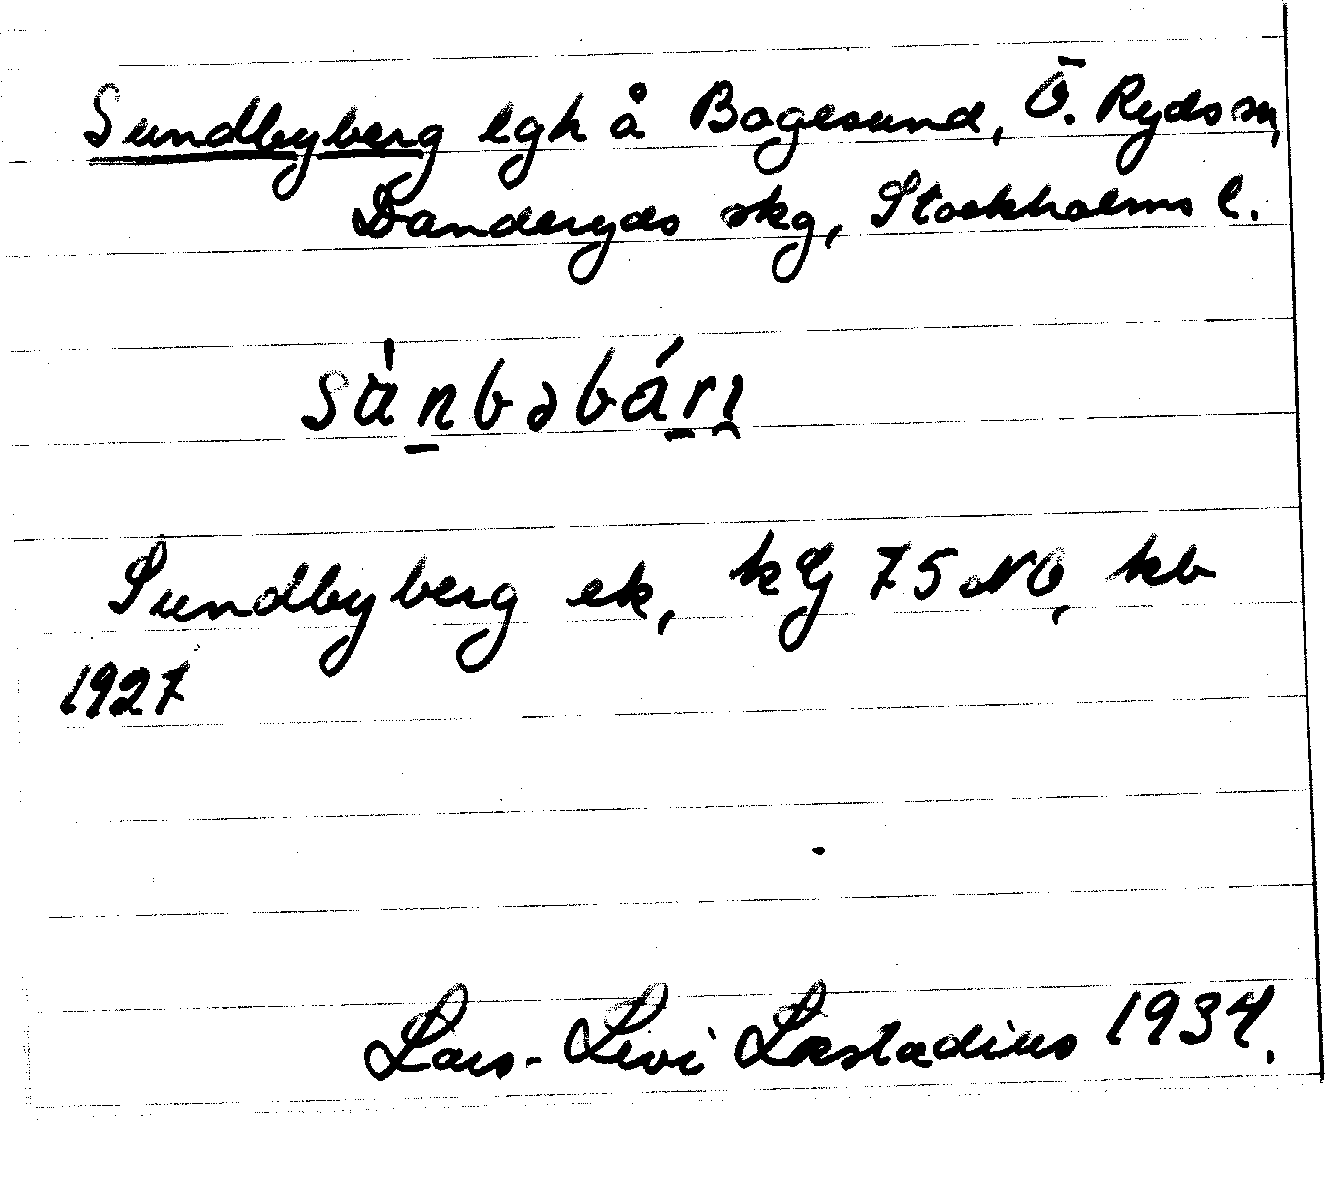 Sundbyberg lgh å Bogesund, Ö. Ryds sn,
Danderyds skg, Stockholms l.
sànbəbárı
Sundbyberg ek, kG 75 NO, kb
1927
Lars-Levi Læstadius 1934.